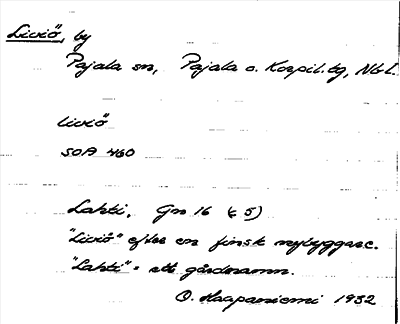 Liviö, by
Pajala sn, Pajala o. Korpil. tg, Nbl.
liviö
SOA 460
Lahti, Gn 16 (s 5)
"Liviö" efter en finsk nybyggare.
"Lahti" = ett gårdsnamn.
O. Haapaniemi 1932